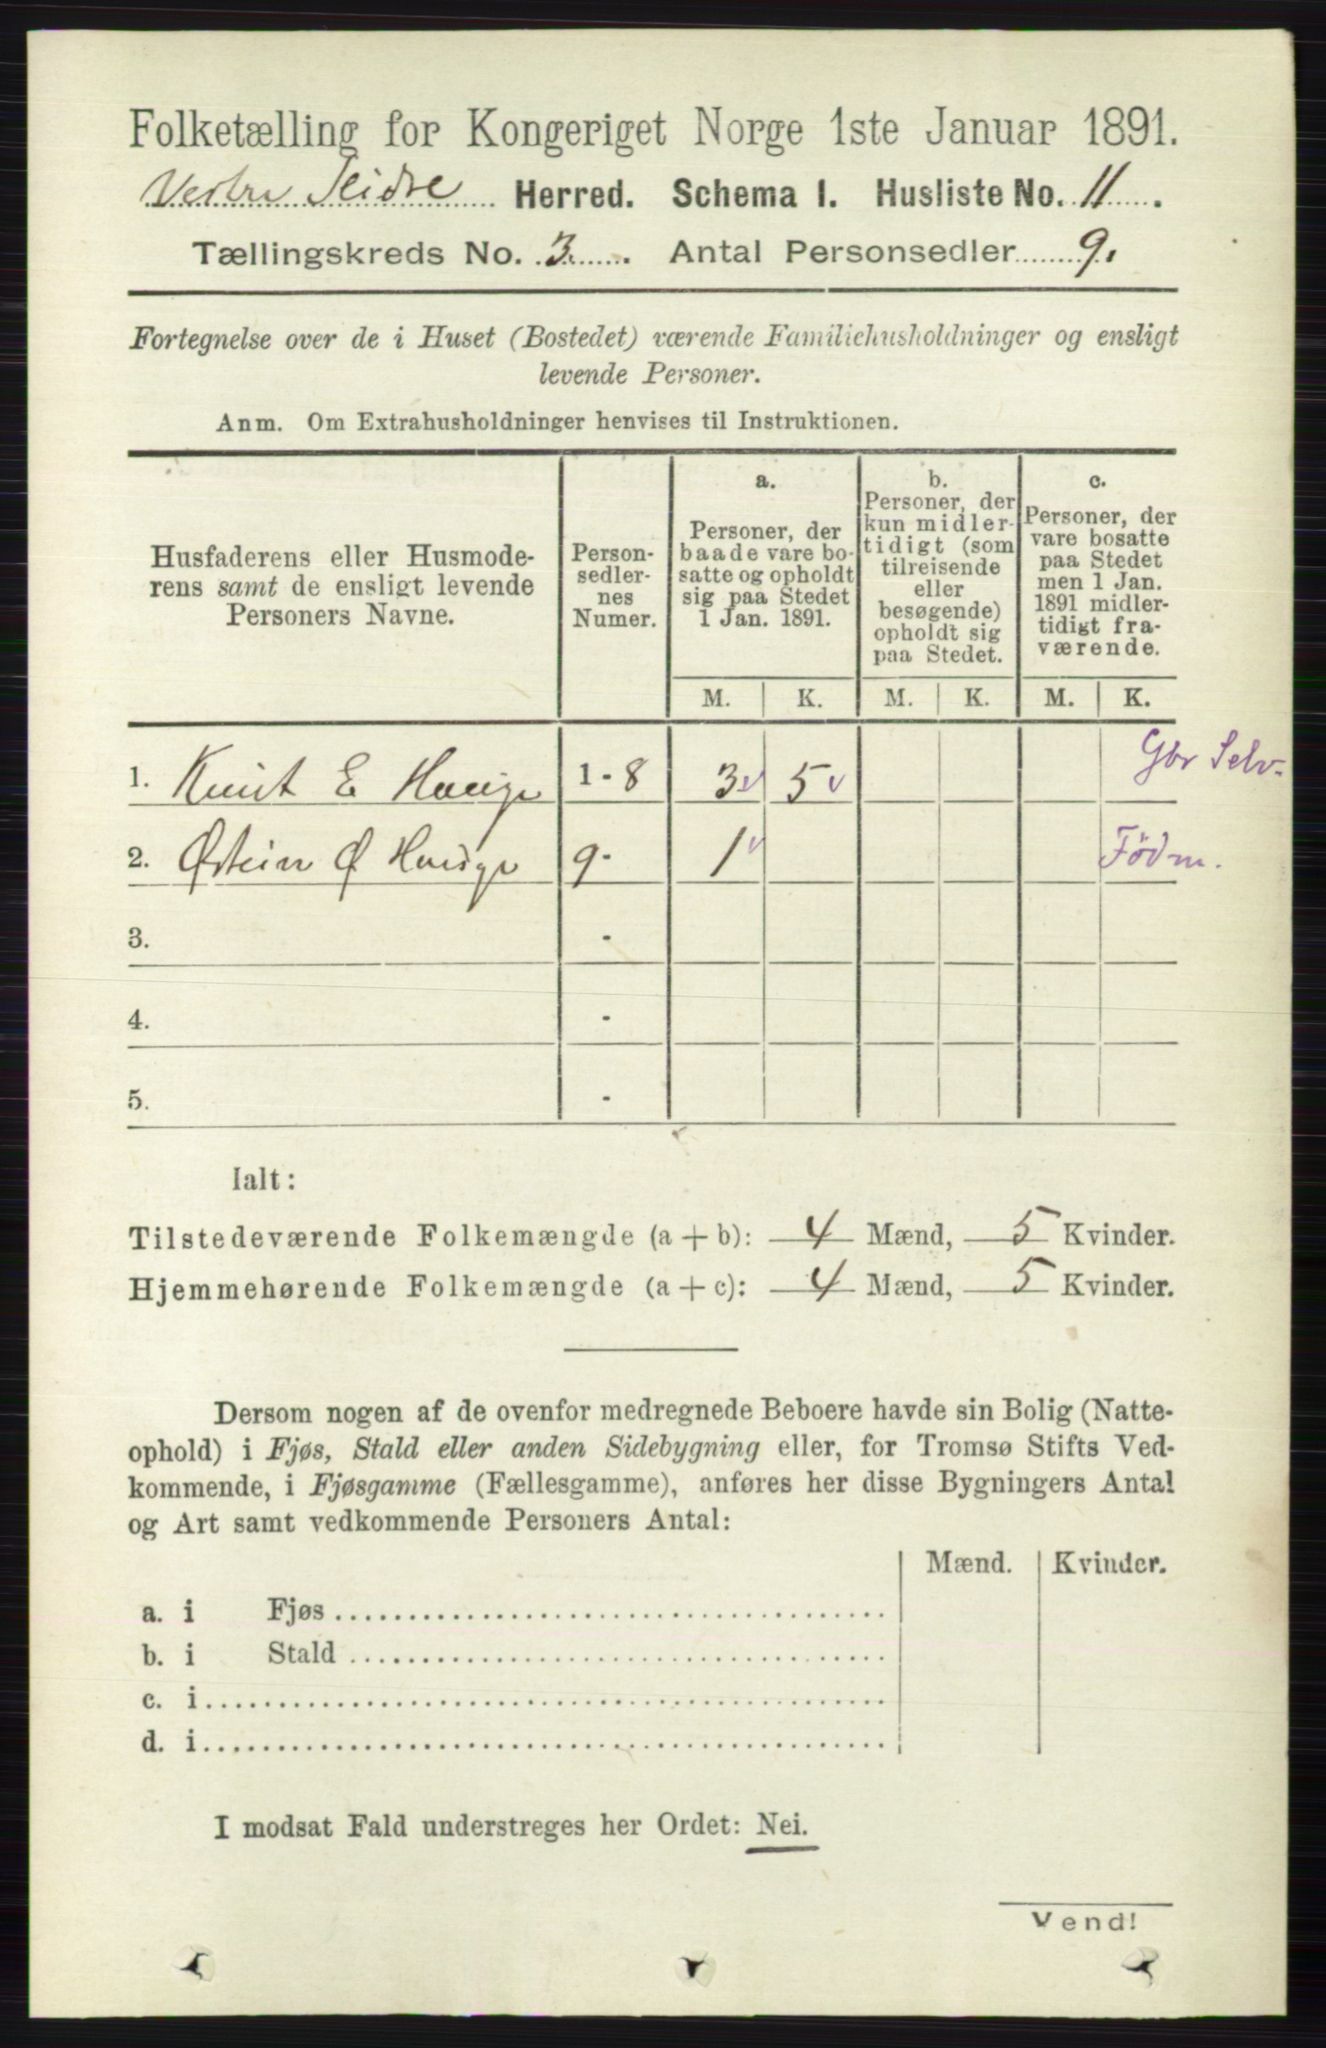 Folketælling for Kongeriget Norge 1ste Januar 1891.
Vestre Slidre Herred. Schema I. Husliste No. 11.
Tællingskreds No. 3. Antal Personsedler 9.
Fortegnelse over de i Huset (Bostedet) værende Familiehusholdninger og ensligt
levende Personer.
Anm. Om Extrahusholdninger henvises til Instruktionen.
Husfaderens eller Husmode-
rens samt de ensligt levende
Personers Navne.
Person-
sedler-
nes
Numer.
a.
Personer, der
baade vare bo-
satte og opholdt
sig paa Stedet
1 Jan. 1891.
b.
Personer, der
kun midler-
tidigt (som
tilreisende
eller
besøgende)
opholdt sig
paa Stedet.
c.
Personer, der
vare bosatte
paa Stedet
men 1 Jan.
1891 midler-
tidigt fra-
værende.
M. K. M. K. M. K.
1. Knut E Hauge 1 - 8 3 5 Gbr Selv.
2. Østein Ø Hauge 9 - 1 Födm.
3. -
4. -
5. -
Ialt:
Tilstedeværende Folkemængde (a + b): 4 Mænd, 5 Kvinder.
Hjemmehørende Folkemængde (a + c): 4 Mænd, 5 Kvinder.
Dersom nogen af de ovenfor medregnede Beboere havde sin Bolig (Natte-
ophold) i Fjøs, Stald eller anden Sidebygning eller, for Tromsø Stifts Ved-
kommende, i Fjøsgamme (Fællesgamme), anføres her disse Bygningers Antal
og Art samt vedkommende Personers Antal:
Mænd. Kvinder.
a. i Fjøs
b. i Stald
c. i
d. i
I modsat Fald understreges her Ordet: Nei.
Vend!